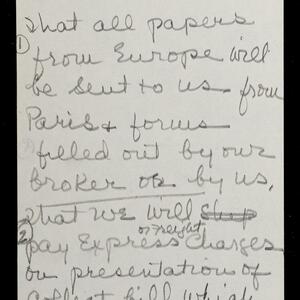 that all papers
① from Europe will
be sent to us from
Paris & forms
filled out by our
broker or by us,
that we will ship
or freight
② pay Express Charges
on presentation of
collect bill which